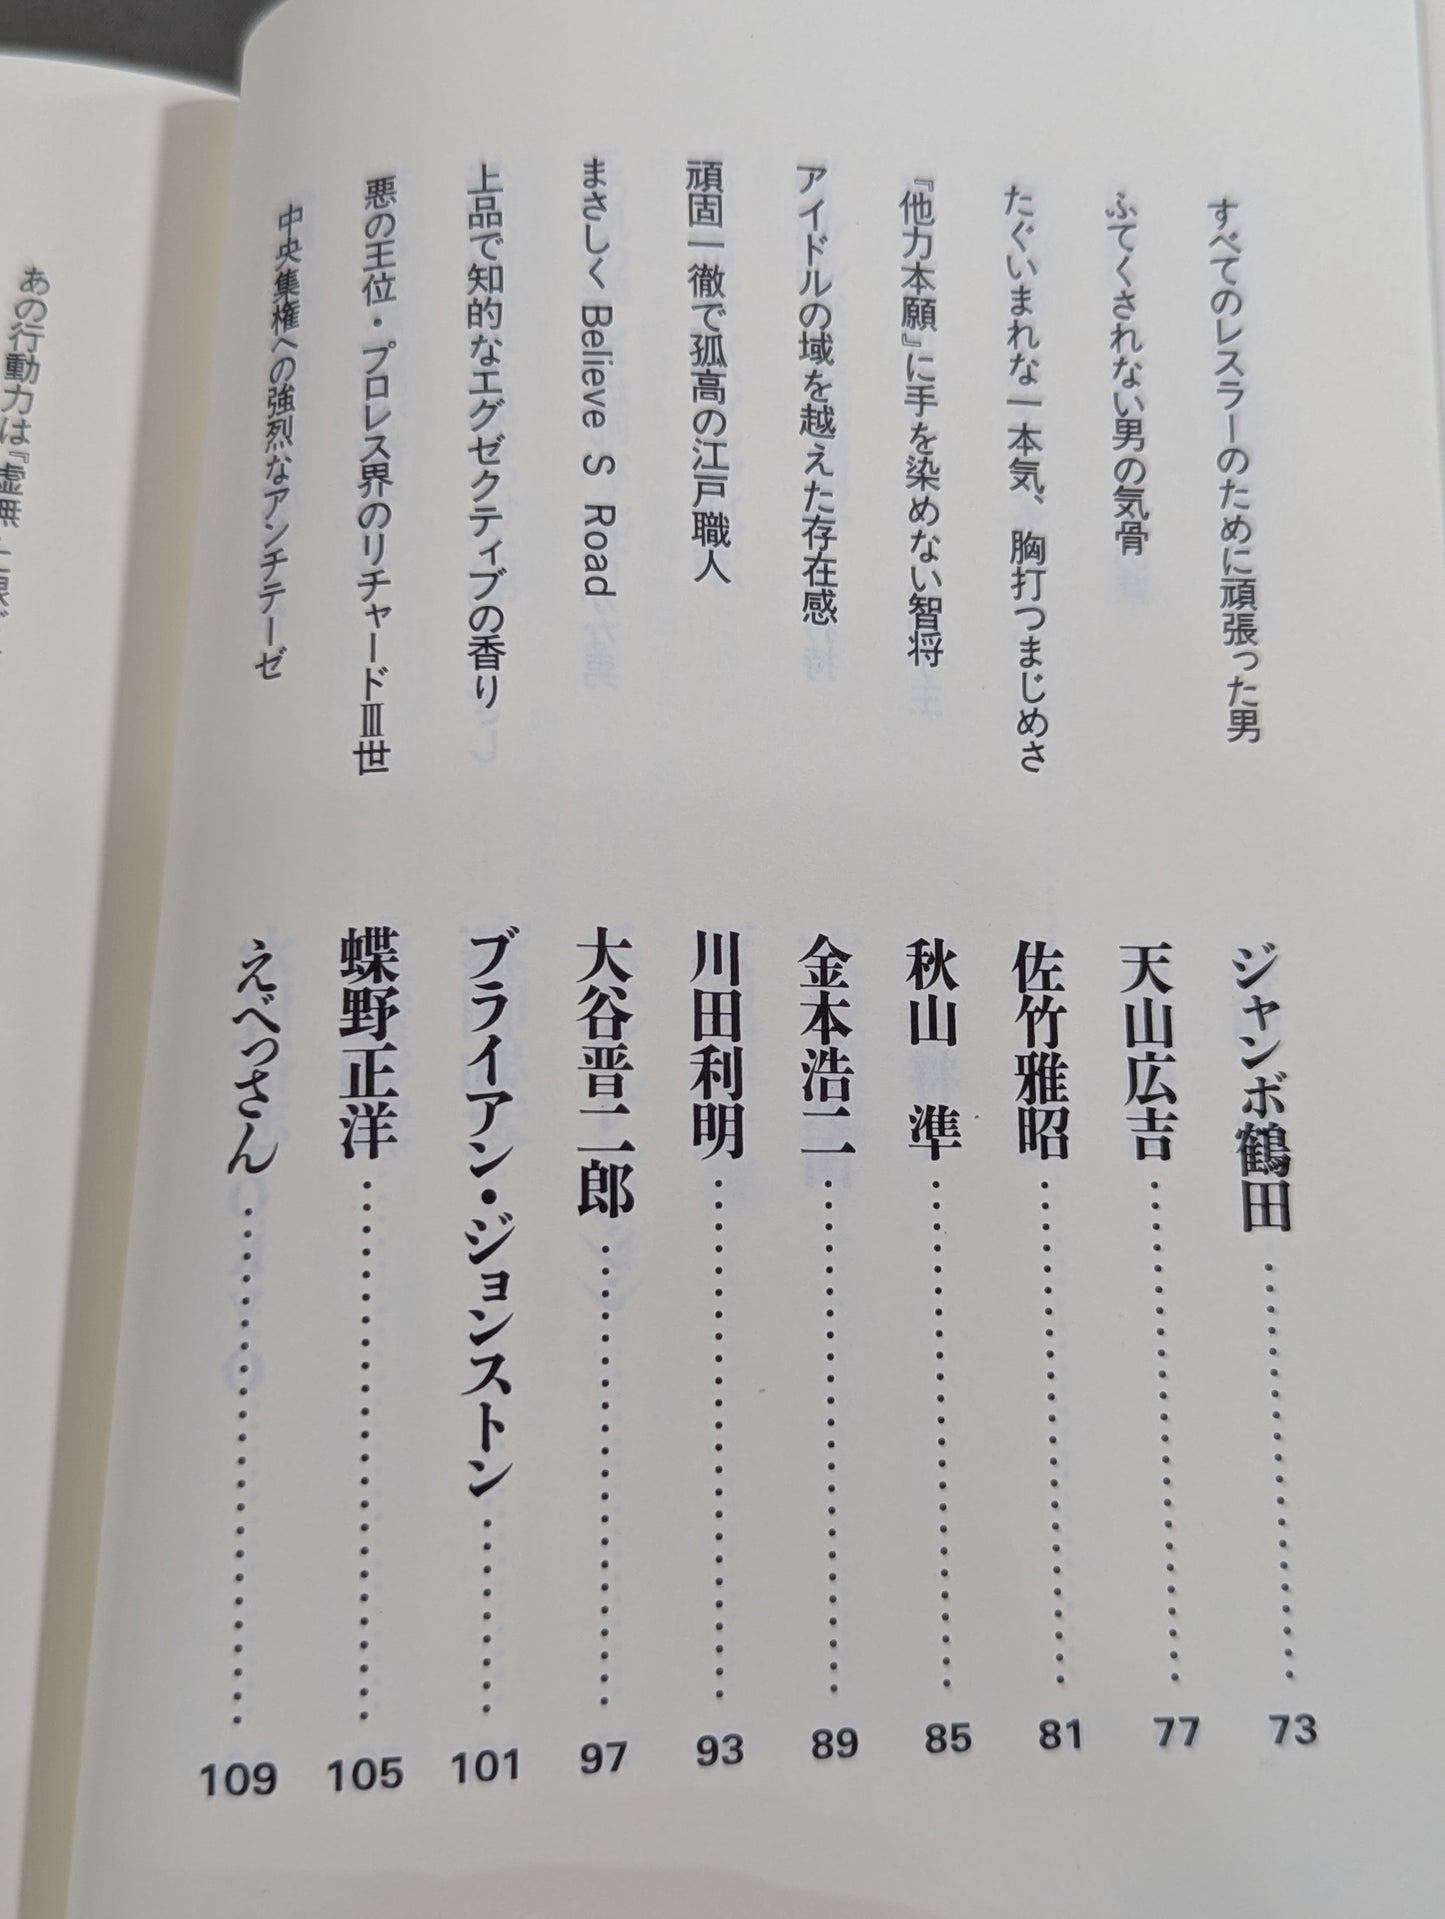 すべてのレスラーのために頑張った男
ジャンボ鶴田……………………73
ふてくされない男の気骨
天山広吉……………………77
たぐいまれな一本気、胸打つまじめさ
佐竹雅昭……………………81
『他力本願』に手を染めない智将
秋山 準……………………85
アイドルの域を越えた存在感
金本浩二……………………89
頑固一徹で孤高の江戸職人
川田利明……………………93
まさしく Believe S Road
大谷晋二郎……………………97
上品で知的なエグゼクティブの香り
ブライアン・ジョンストン…………101
悪の王位・プロレス界のリチャードⅢ世
蝶野正洋……………………105
中央集権への強烈なアンチテーゼ
えべっさん……………………109
あの行動力は『虚無